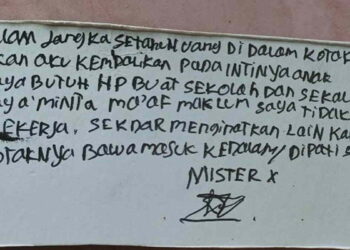 ALAM JANGKA SETAHUN UANG DI DALAM KOTAK
KAN AKU KEMBALIKAN PADA INTINYA ANAK
AYA BUTUH HP BUAT SEKOLAH DAN SEKAL
AYA MINTA MA'AF MAKLUM SAYA TIDAK
EKERJA. SEKDAR MENGINATKAN LAIN KA
OTAKNYA BAWA MASUK KEDALAM/DIPATI S
MISTER X